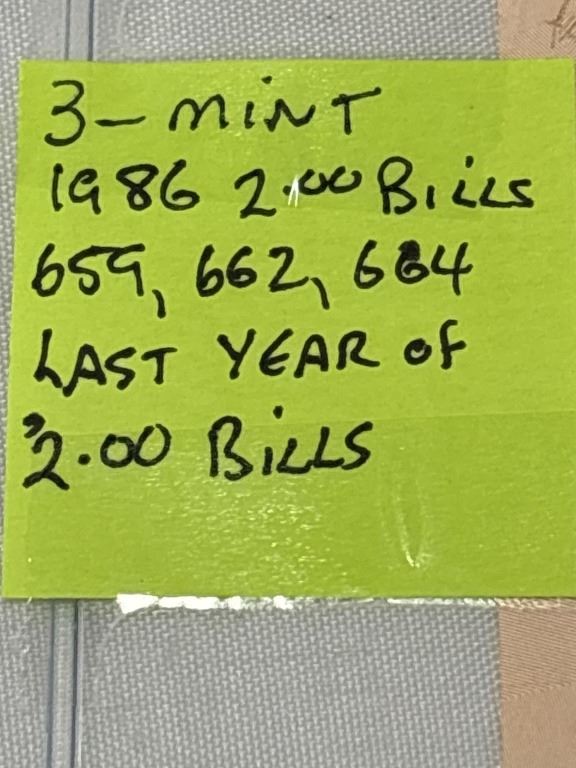 3- MINT
1986 2.00 BiLLS
659, 662, 664
LAST YEAR of
$2.00 BiLLS